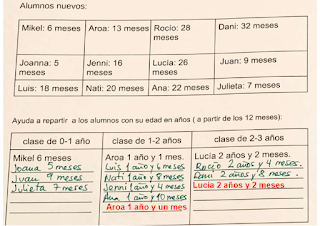 Alumnos nuevos:
Mikel: 6 meses Aroa: 13 meses Rocío: 28 meses Dani: 32 meses
Joanna: 5 meses Jenni: 16 meses Lucía: 26 meses Juan: 9 meses
Luis: 18 meses Nati: 20 meses Ana: 22 meses Julieta: 7 meses
Ayuda a repartir a los alumnos con su edad en años ( a partir de los 12 meses):
clase de 0-1 año clase de 1-2 años clase de 2-3 años
Mikel 6 meses Aroa 1 año y 1 mes. Lucía 2 años y 2 meses.
Joana 5 meses Luis 1 año y 6 meses Rocío 2 años y 4 meses.
Juan 9 meses Nati 1 año y 8 meses Dani 2 años y 8 meses.
Julieta 7 meses Jenni 1 año y 4 meses Lucía 2 años y 2 meses
Ana 1 año y 10 meses
Aroa 1 año y un mes